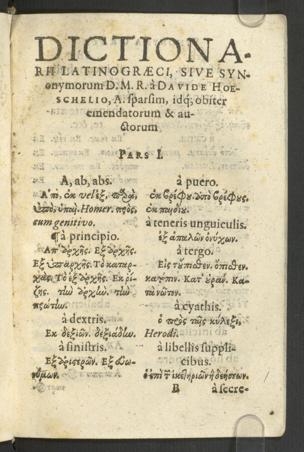 DICTIONA-
RII LATINOGRÆCI, SIVE SYN-
onymorum D. M. R. à DAVIDE HOE-
SCHELIO, A. sparsim, idq; obiter
emendatorum & au-
ctorum
PARS I.
A, ab, abs.
Ἀπὸ, ἐκ vel ἐξ, παρὰ,
ὑπὸ, ὑπαὶ. Homer. πρὸς,
cum genitivo.
¶ à principio.
Ἀπ' ἀρχῆς. Ἐξ ἀρχῆς.
Ἐξ ὑπαρχῆς. Τὸ καταρ-
χάς. Τὸ ἐξ ἀρχῆς. Ἐκ ῥί-
ζης. τὴν ἀρχὴν. τὴν
πρώτην.
à dextris.
Ἐκ δεξιῶν.
à sinistris.
Ἐξ ἀριστερῶν. Ἐξ εὐω-
νύμων.
à puero.
ἐκ βρέφους, ὑπὸ βρέφους,
ἐκ παιδίου.
à teneris unguiculis.
ἐξ ἁπαλῶν ὀνύχων.
à tergo.
Εἰς τοὔπισθεν. ὄπισθεν.
κατόπιν. Κατ' οὐρὰν. Κα-
τὰ νώτου.
à cyathis.
ὁ πρὸς ταῖς κύλιξι.
Herodi.
à libellis suppli-
cibus.
ὁ ἐπὶ τ ἱκετηριῶν ἢ δεήσεων.
B à secre-